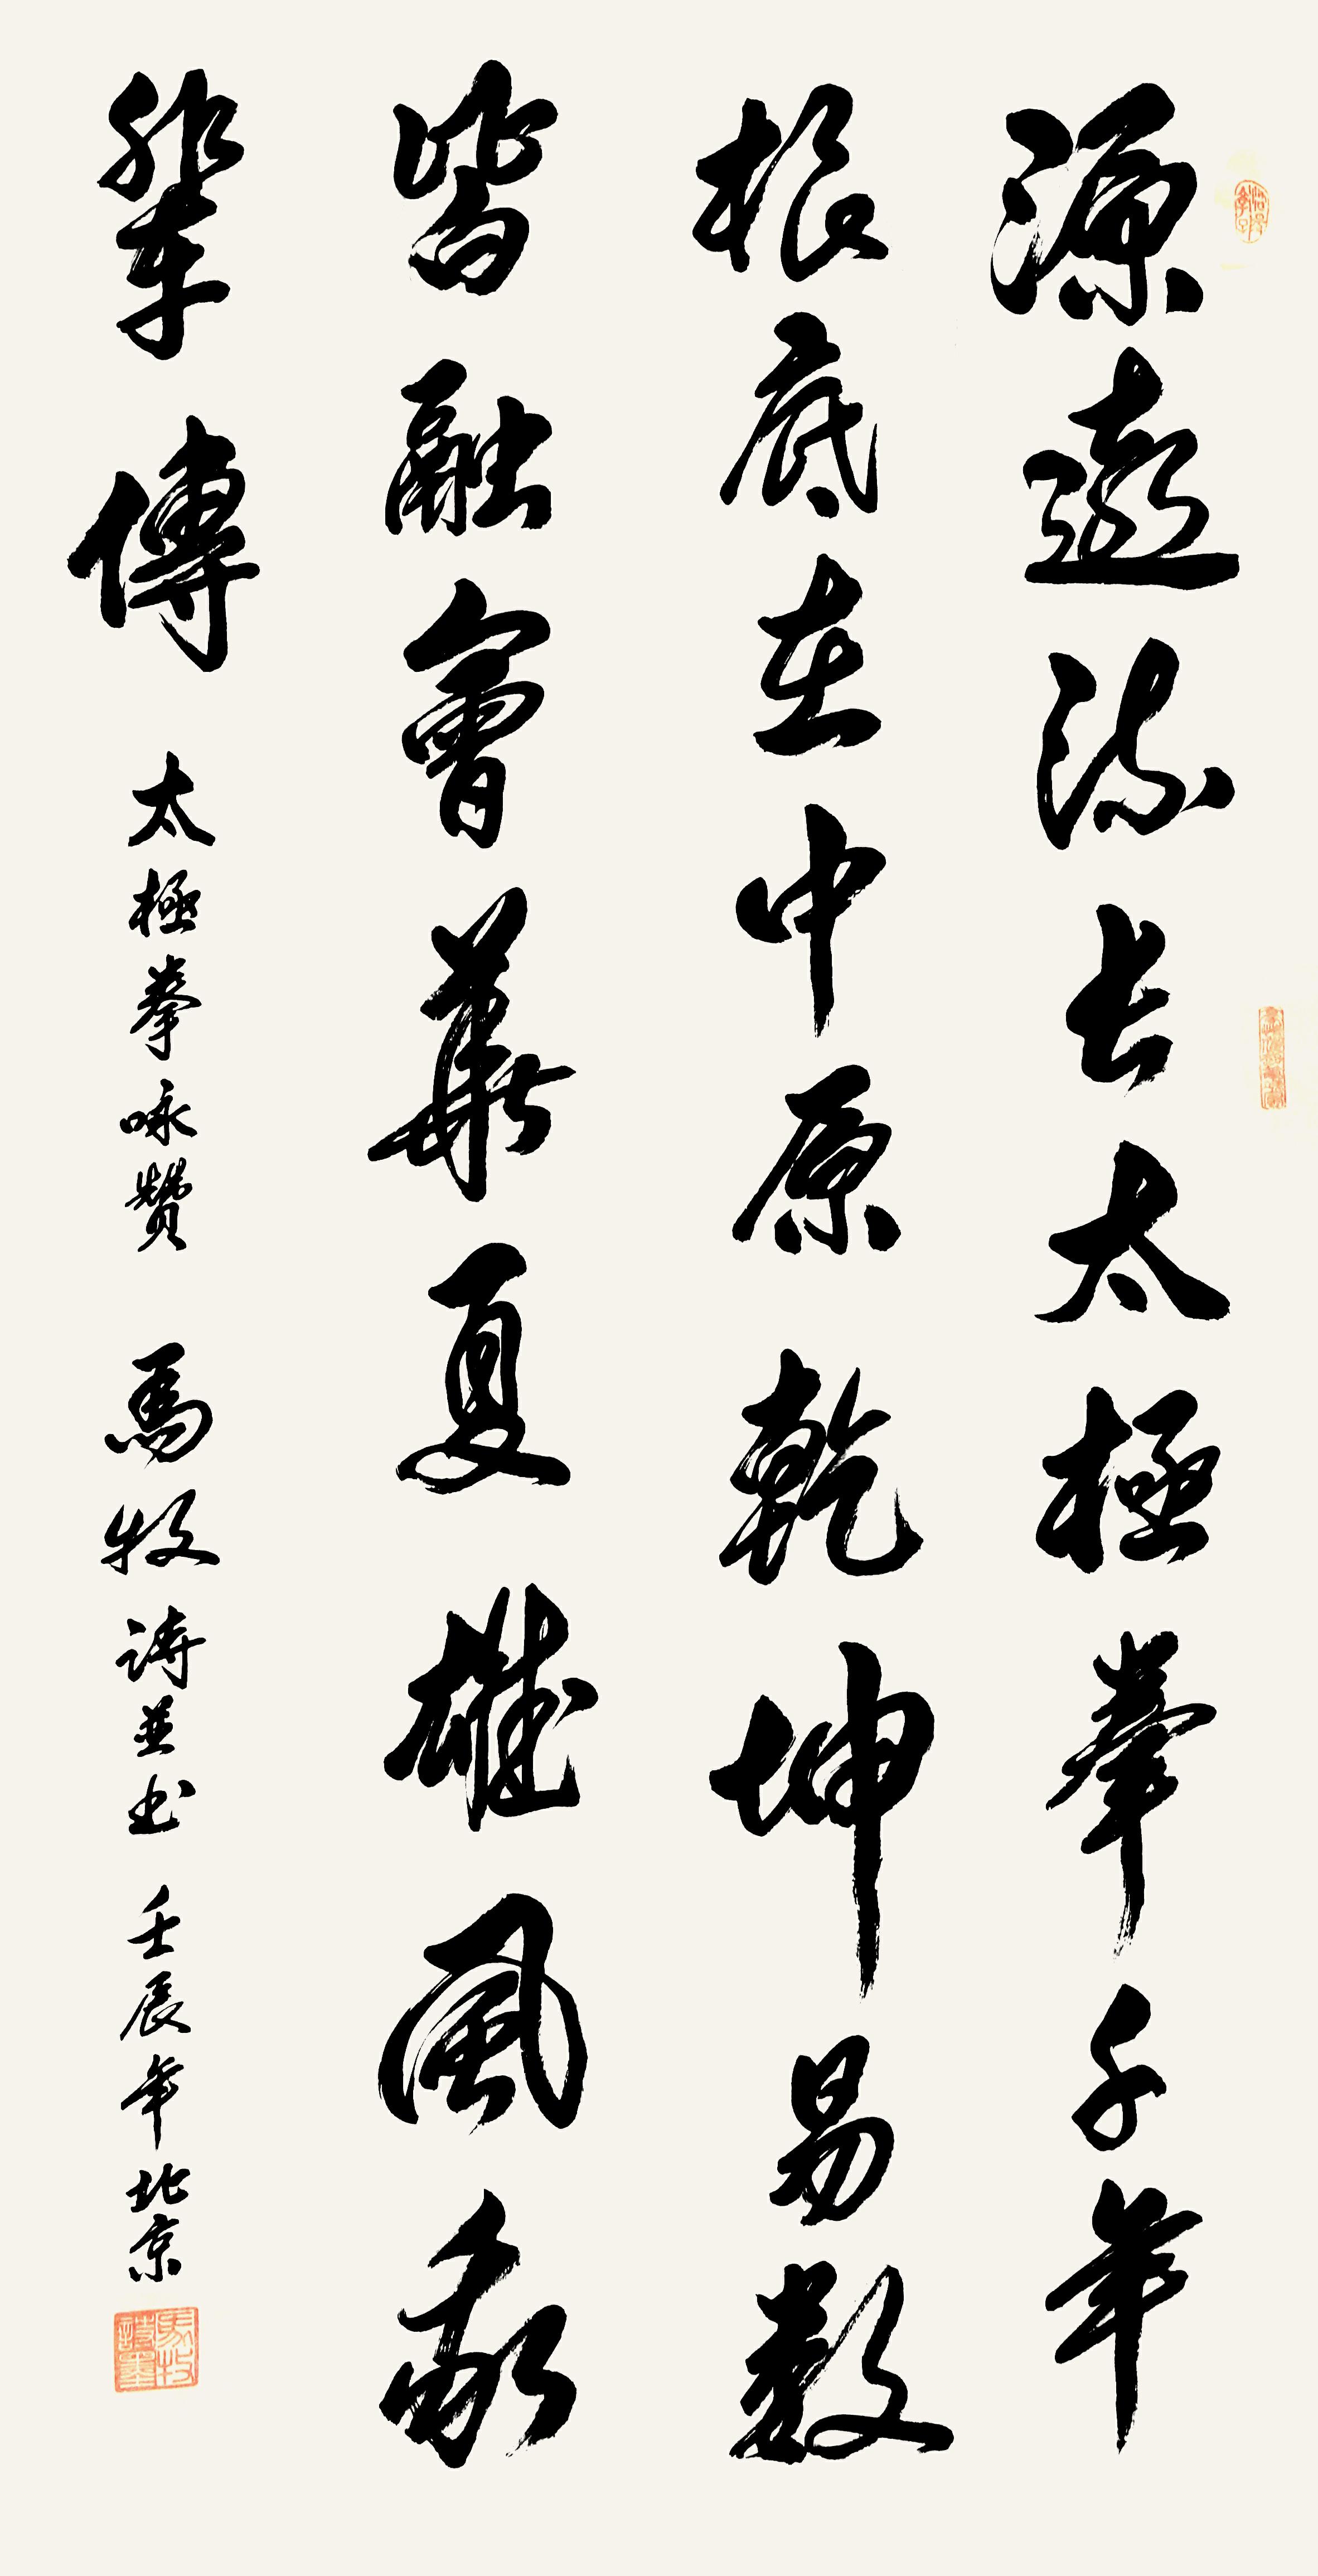 源遠流長太極拳千年
根底在中原乾坤易數
皆融會華夏雄風我
輩傳 太極拳咏贊 馬牧詩並书 壬辰年北京